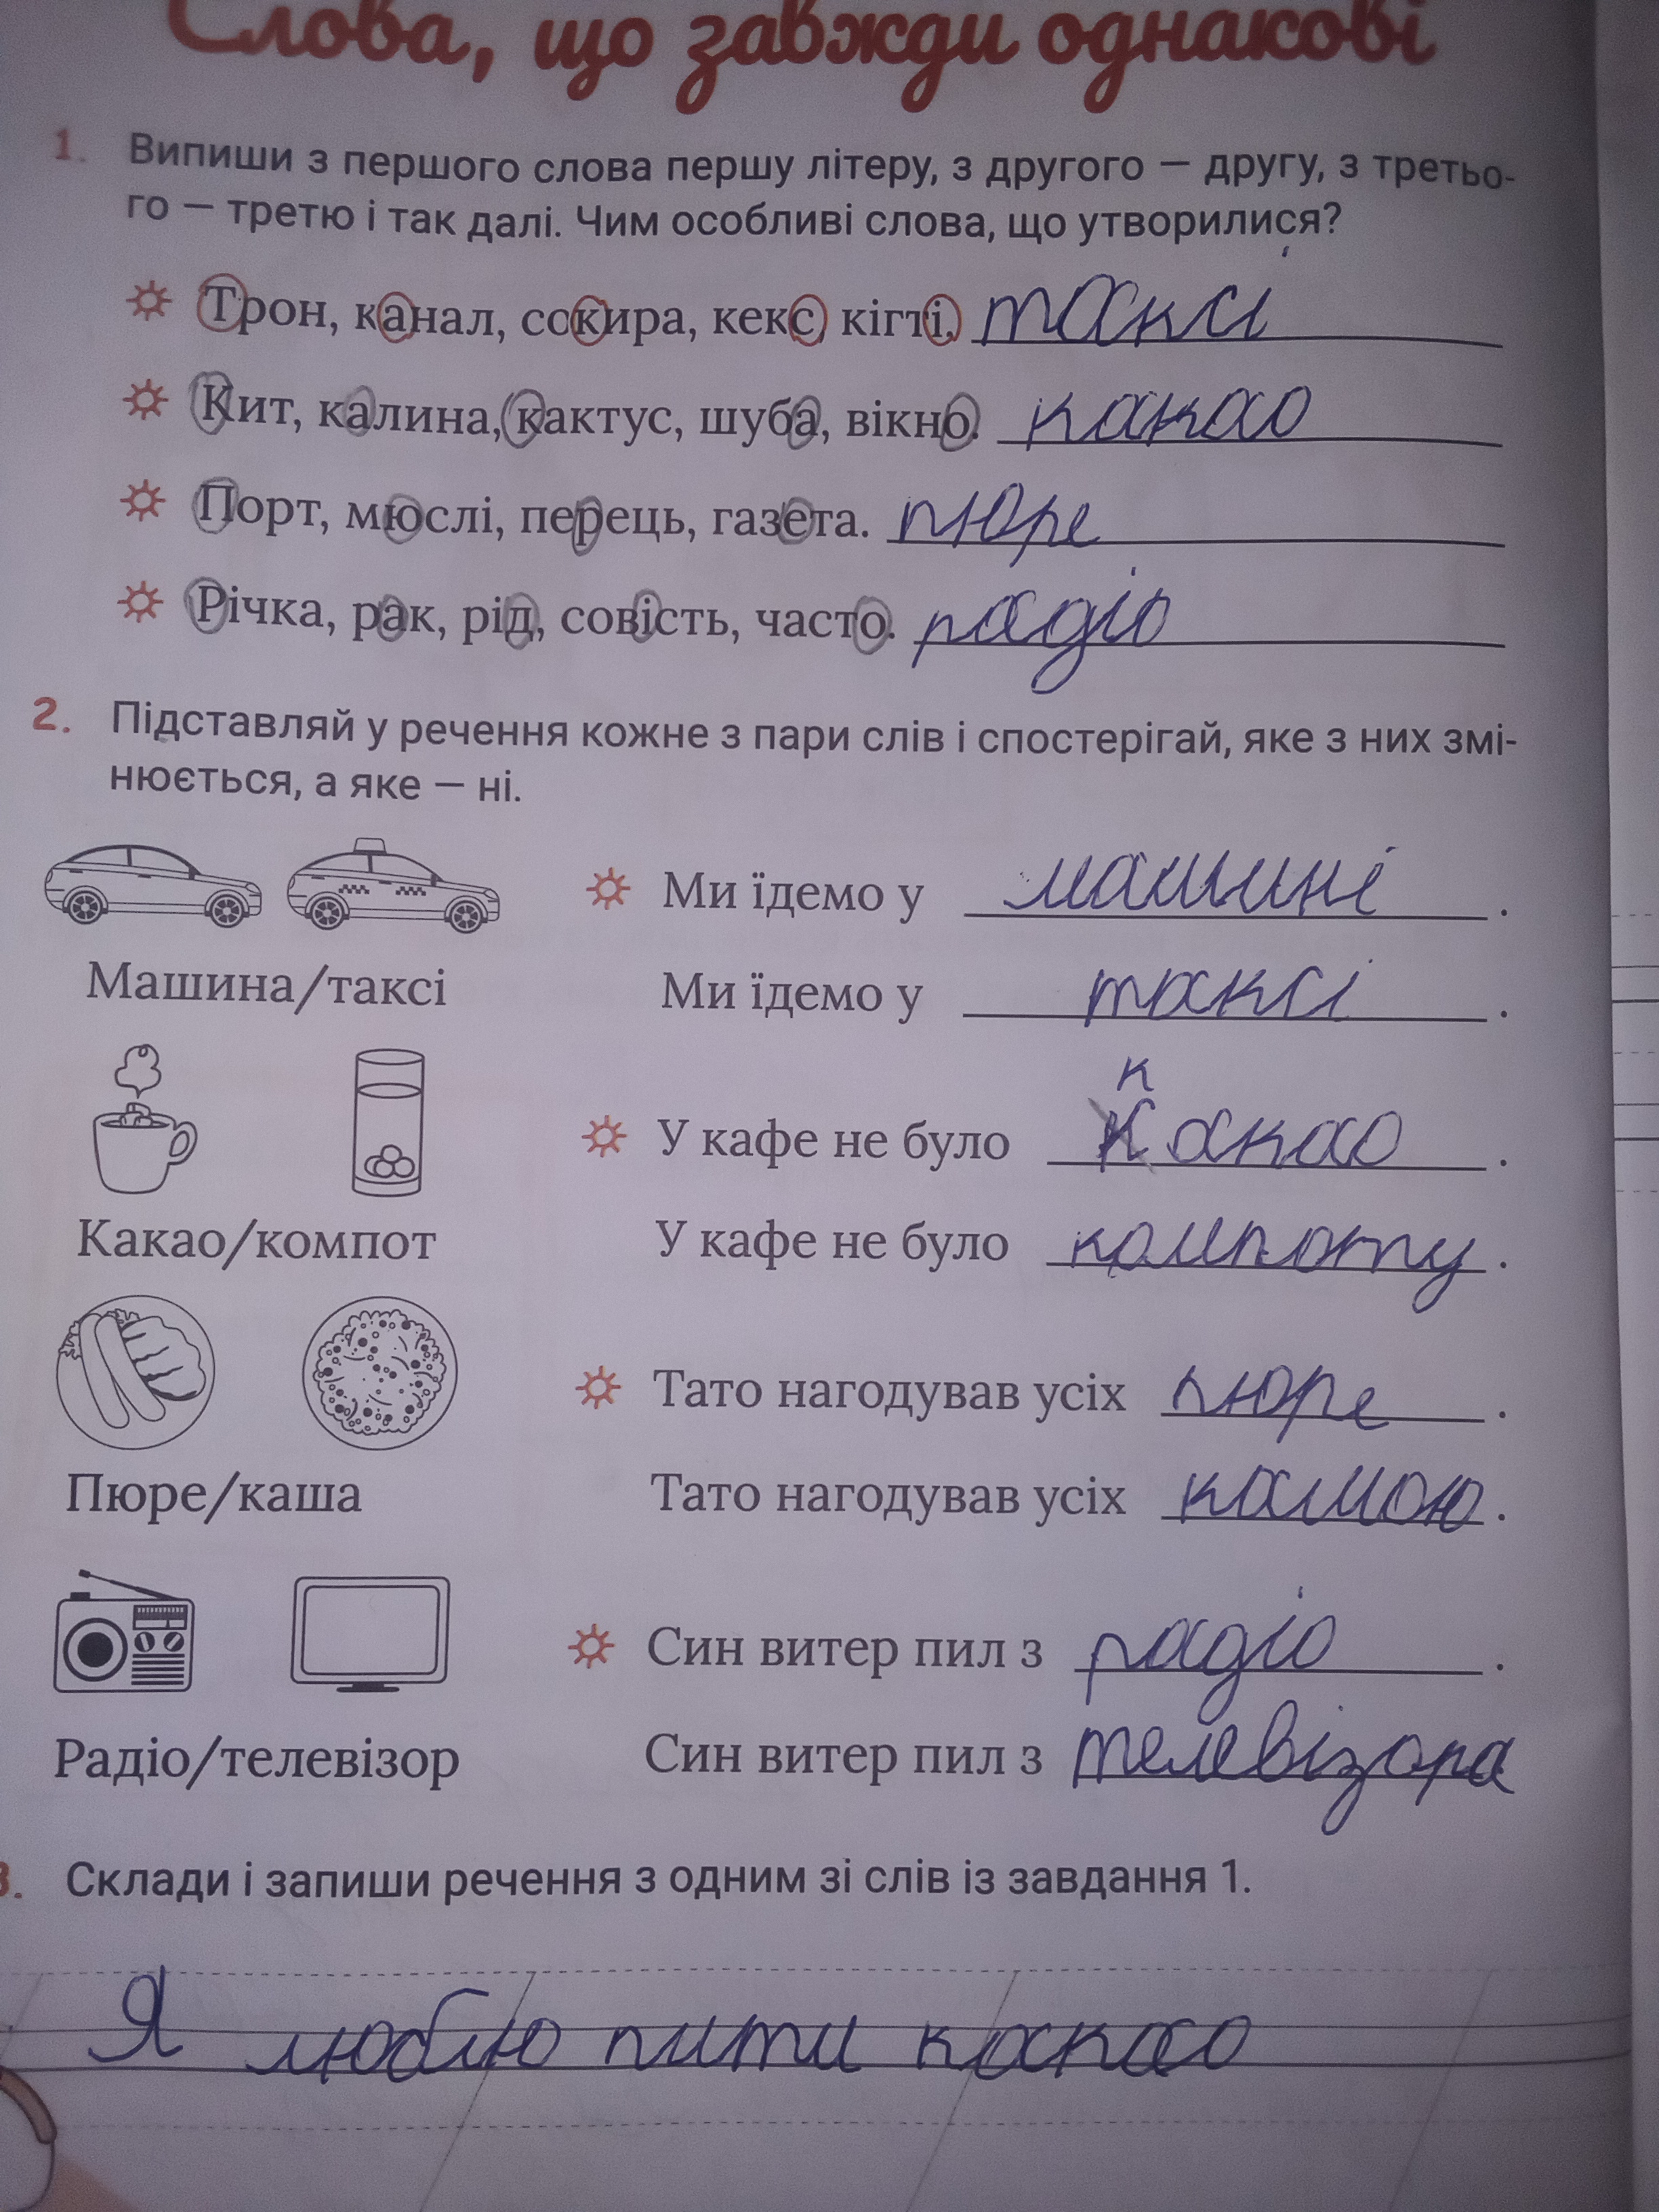 Слова, що завжди однакові
1. Випиши з першого слова першу літеру, з другого — другу, з третьо-
го — третю і так далі. Чим особливі слова, що утворилися?
Трон, канал, сокира, кекс, кігті, таксі
Кит, калина, кактус, шуба, вікно. какао
Порт, мюслі, перець, газета. пюре
Річка, рак, рід, совість, часто. радіо
2. Підставляй у речення кожне з пари слів і спостерігай, яке з них змі-
нюється, а яке — ні.
Ми їдемо у машині.
Машина/таксі
Ми їдемо у таксі.
к
У кафе не було какао.
Какао/компот
У кафе не було компоту.
Тато нагодував усіх пюре.
Пюре/каша
Тато нагодував усіх кашою.
Син витер пил з радіо.
Радіо/телевізор
Син витер пил з телевізора
3. Склади і запиши речення з одним зі слів із завдання 1.
Я люблю пити какао